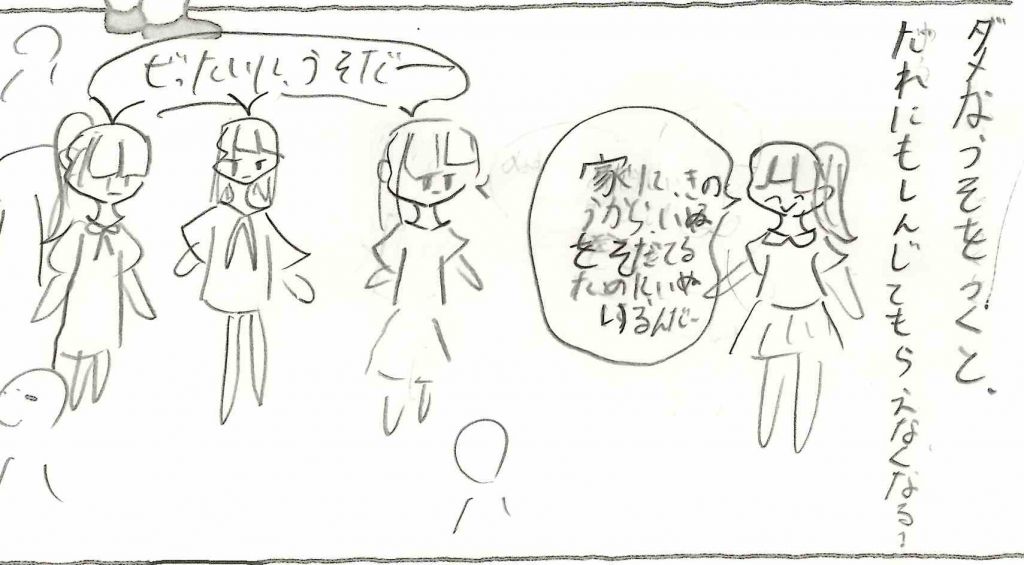 ダメなうそをつくと、
だれにもしんじてもらえなくなる!
家にて、きの
うから、いぬ
をそだてる
ために、いぬ
いるんだー
ぜったいに、うそだー